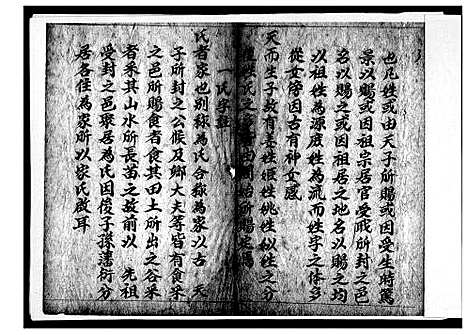 也凡姓或由天子所賜或因受生時罵
景以賜之或因祖宗居官受職所封之邑
名以賜之或因祖居之地名以賜之均
以祖姓為源庶姓為流而姓字之体多
從女傍因古有神女感
天而生子故有姜姓姬姓姚姓似姓之分
氏字註
氏者家也別稱為氏合稱為家以古 天
子所封之公候及鄉大夫等皆有食采
之邑所賜食者食其田土所出之谷采
者采其山水所長苗之故前以 先祖
受封之邑聚居為氏因後子孫藩衍分
居各住為家所以家氏啟耳